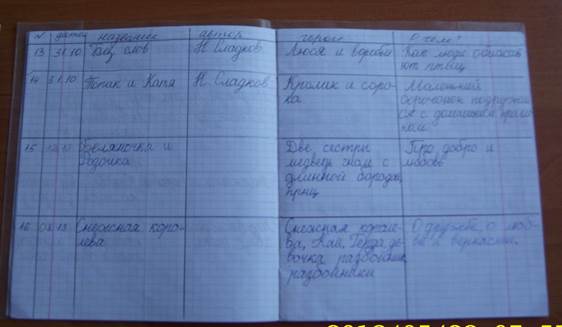 N дата название автор герои О чём?
13 31.10 Без слов Н. Сладков Люди и воробьи Как люди спасают птиц
14 31.10 Топик и Катя Н. Сладков Кролик и сорока Маленький сорочонок подружился с домашним кроликом
15 Беляночка и Розочка Две сестры медведь гном с длинной бородой, принц Про добро и любовь
16 Снежная королева Снежная королева, Кай, Герда девочка разбойник разбойники О дружбе, о любви и верности.